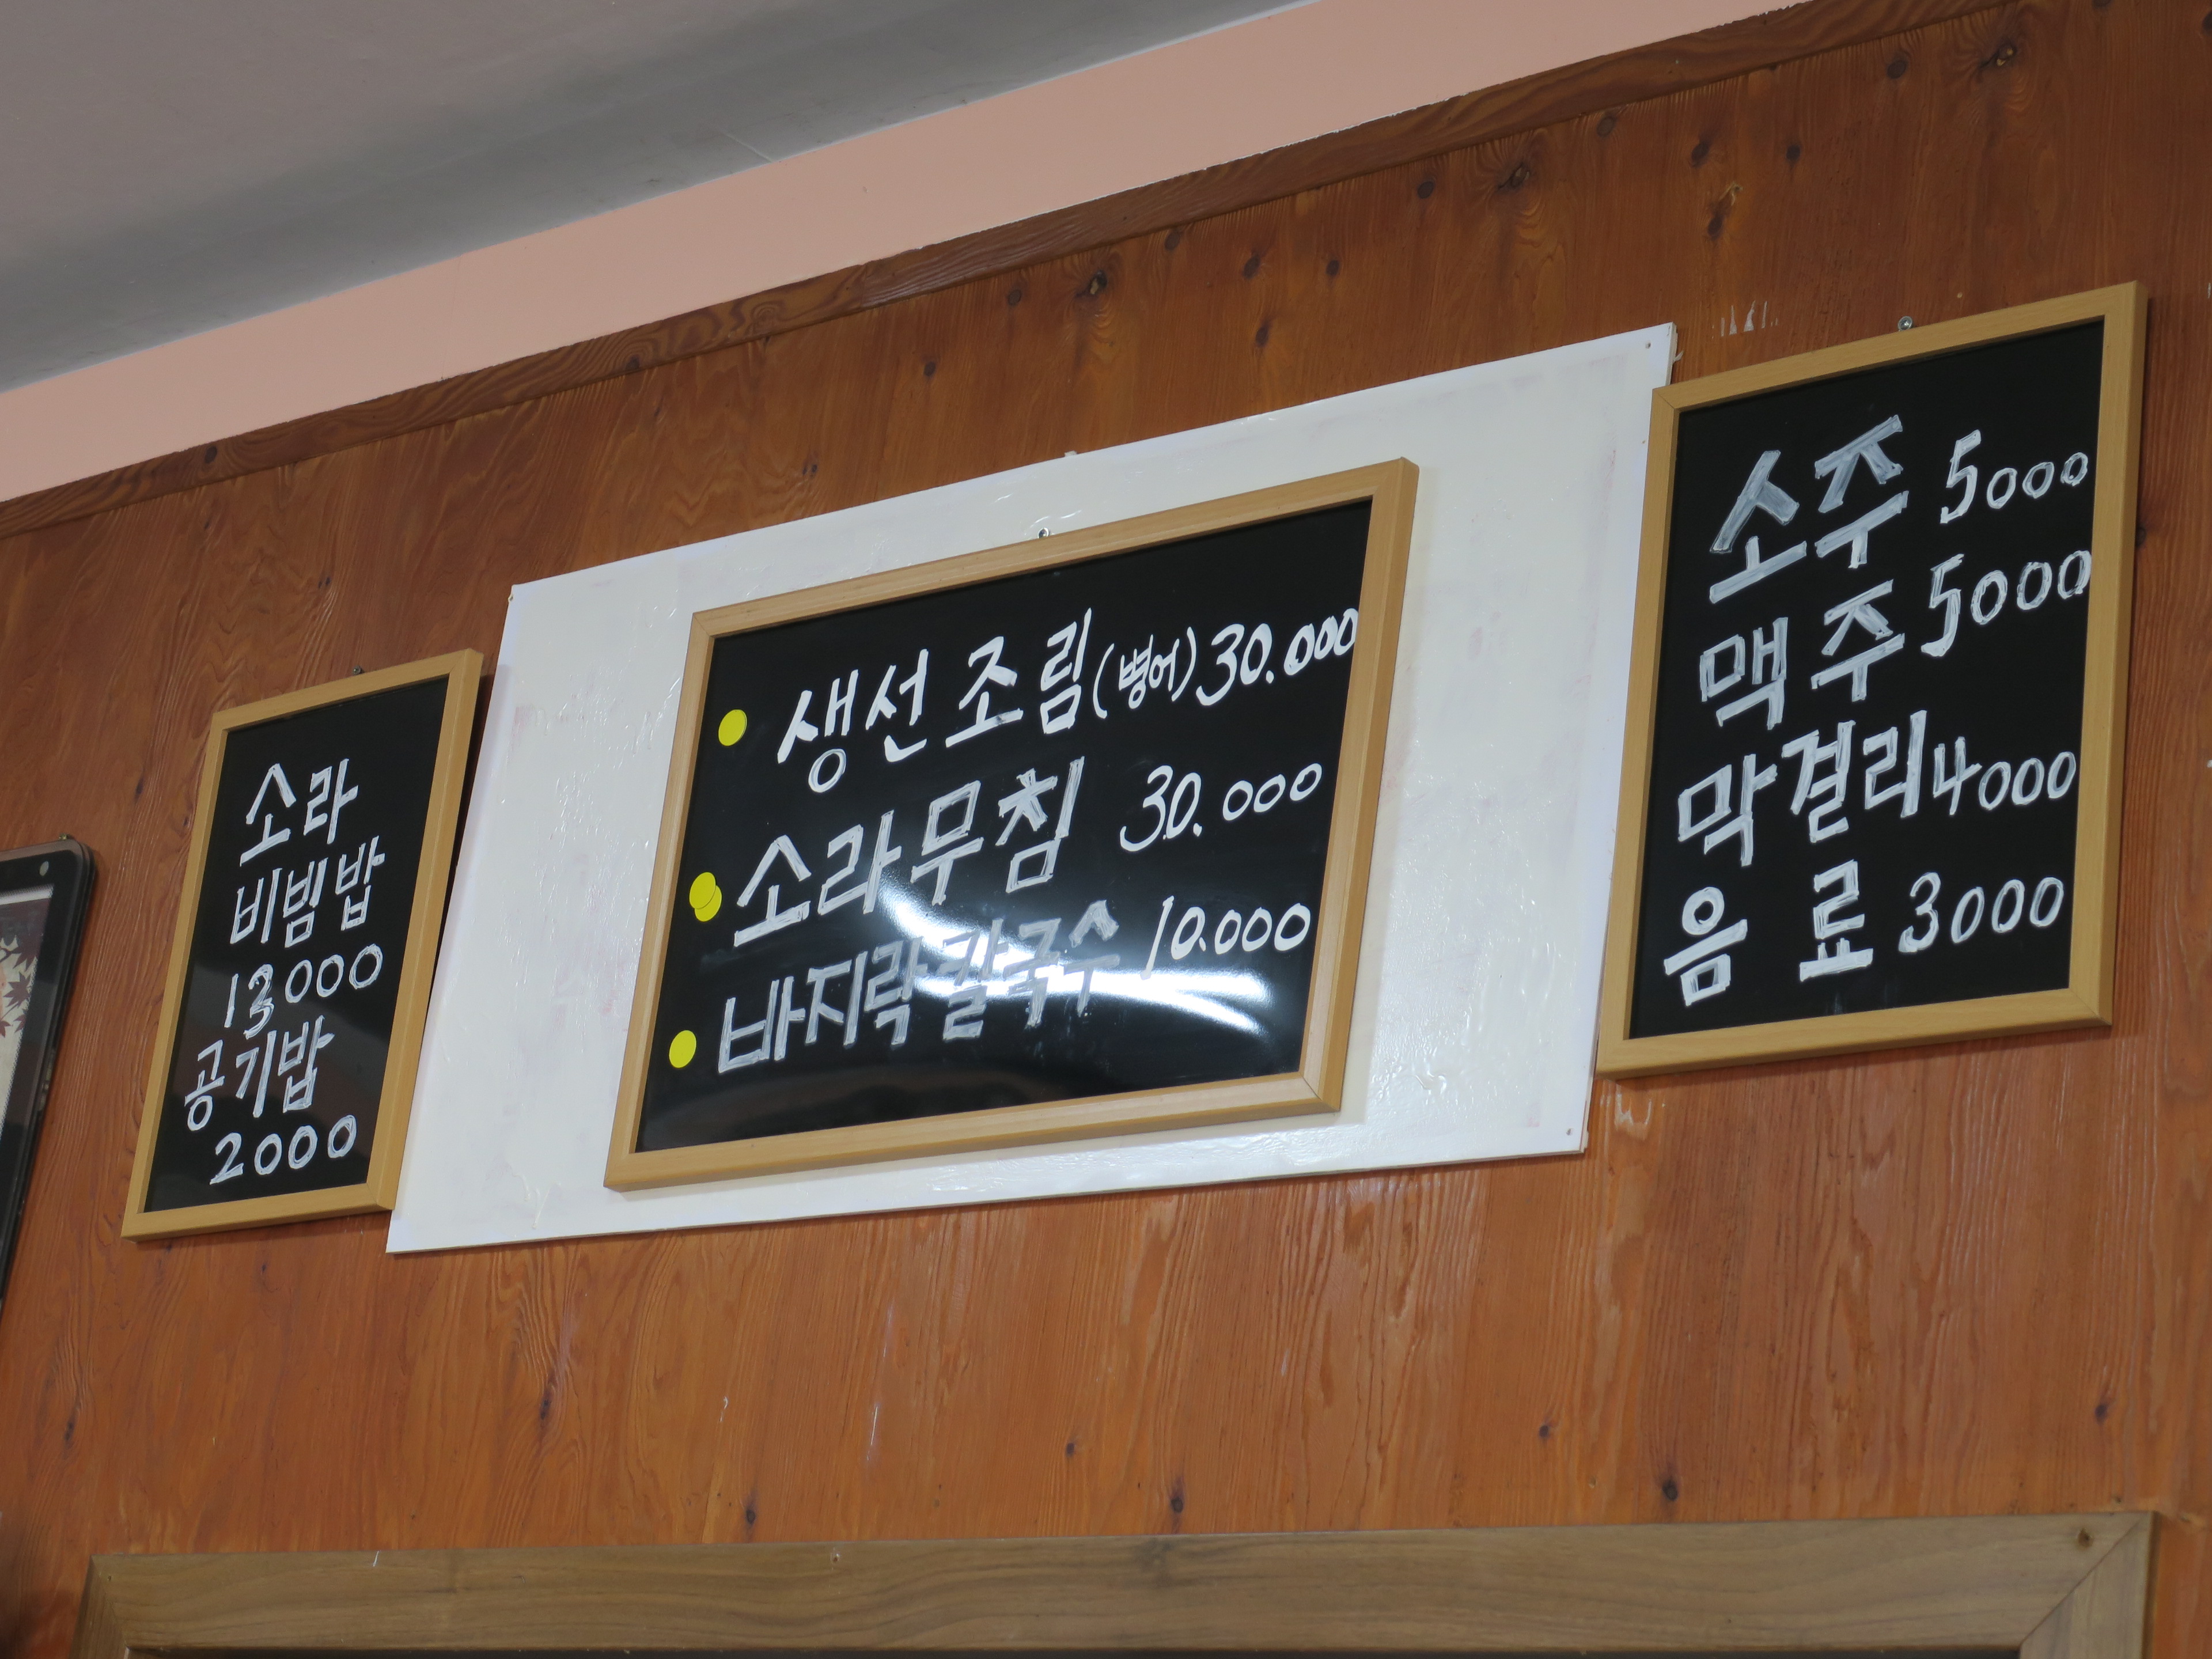 소라
비빔밥
13000
공기밥
2000
생선조림(병어) 30.000
소라무침 30.000
바지락칼국수 10.000
소주 5000
맥주 5000
막걸리 4000
음료 3000